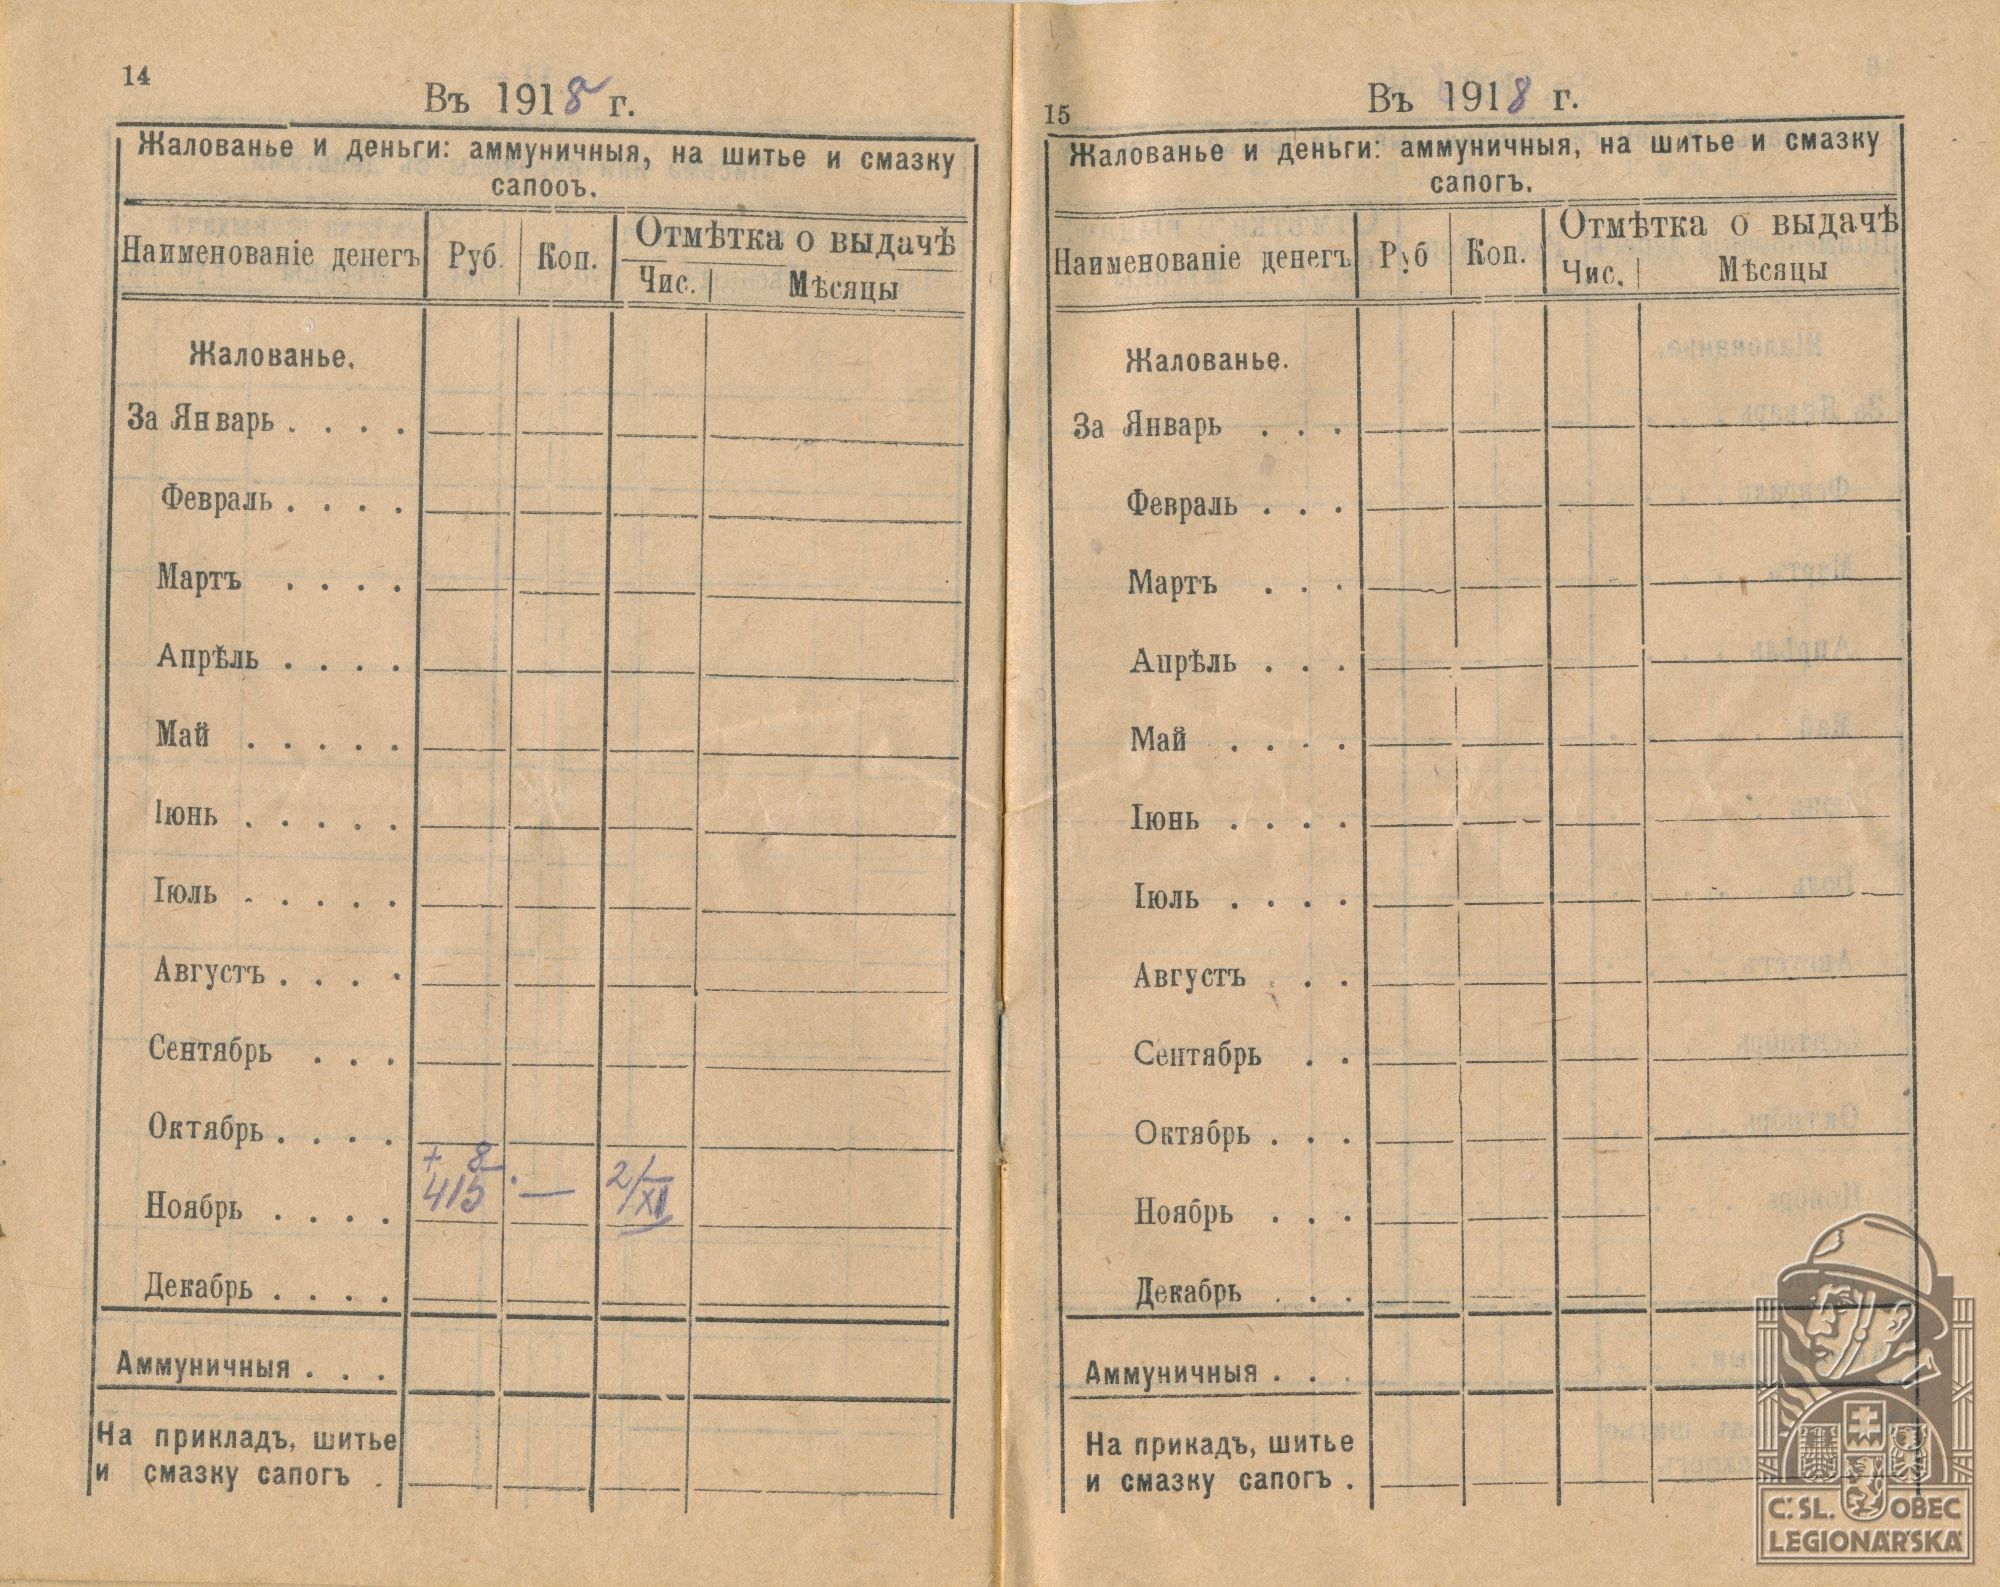 14
Въ 1918 г.
Жалованье и деньги: аммуничныя, на шитье и смазку
сапооъ.
Наименованіе денегъ Руб. Коп. Отмѣтка о выдачѣ
Чис. Мѣсяцы
Жалованье.
За Январь . . . .
Февраль . . . .
Мартъ . . . .
Апрѣль . . . .
Май . . . . .
Іюнь . . . . .
Іюль . . . . .
Августъ . . . .
Сентябрь . . .
Октябрь . . . .
+ 8
Ноябрь . . . . 415 — 2/XI
Декабрь . . . .
Аммуничныя . . .
На прикладъ, шитье
и смазку сапогъ .
15
Въ 1918 г.
Жалованье и деньги: аммуничныя, на шитье и смазку
сапогъ.
Наименованіе денегъ Руб Коп. Отмѣтка о выдачѣ
Чис. Мѣсяцы
Жалованье.
За Январь . . .
Февраль . . .
Мартъ . . .
Апрѣль . . .
Май . . . .
Іюнь . . . .
Іюль . . . .
Августъ . .
Сентябрь . .
Октябрь . . .
Ноябрь . . .
Декабрь . . .
Аммуничныя . . .
На прикадъ, шитье
и смазку сапогъ .
Č.SL. OBEC
LEGIONÁŘSKÁ